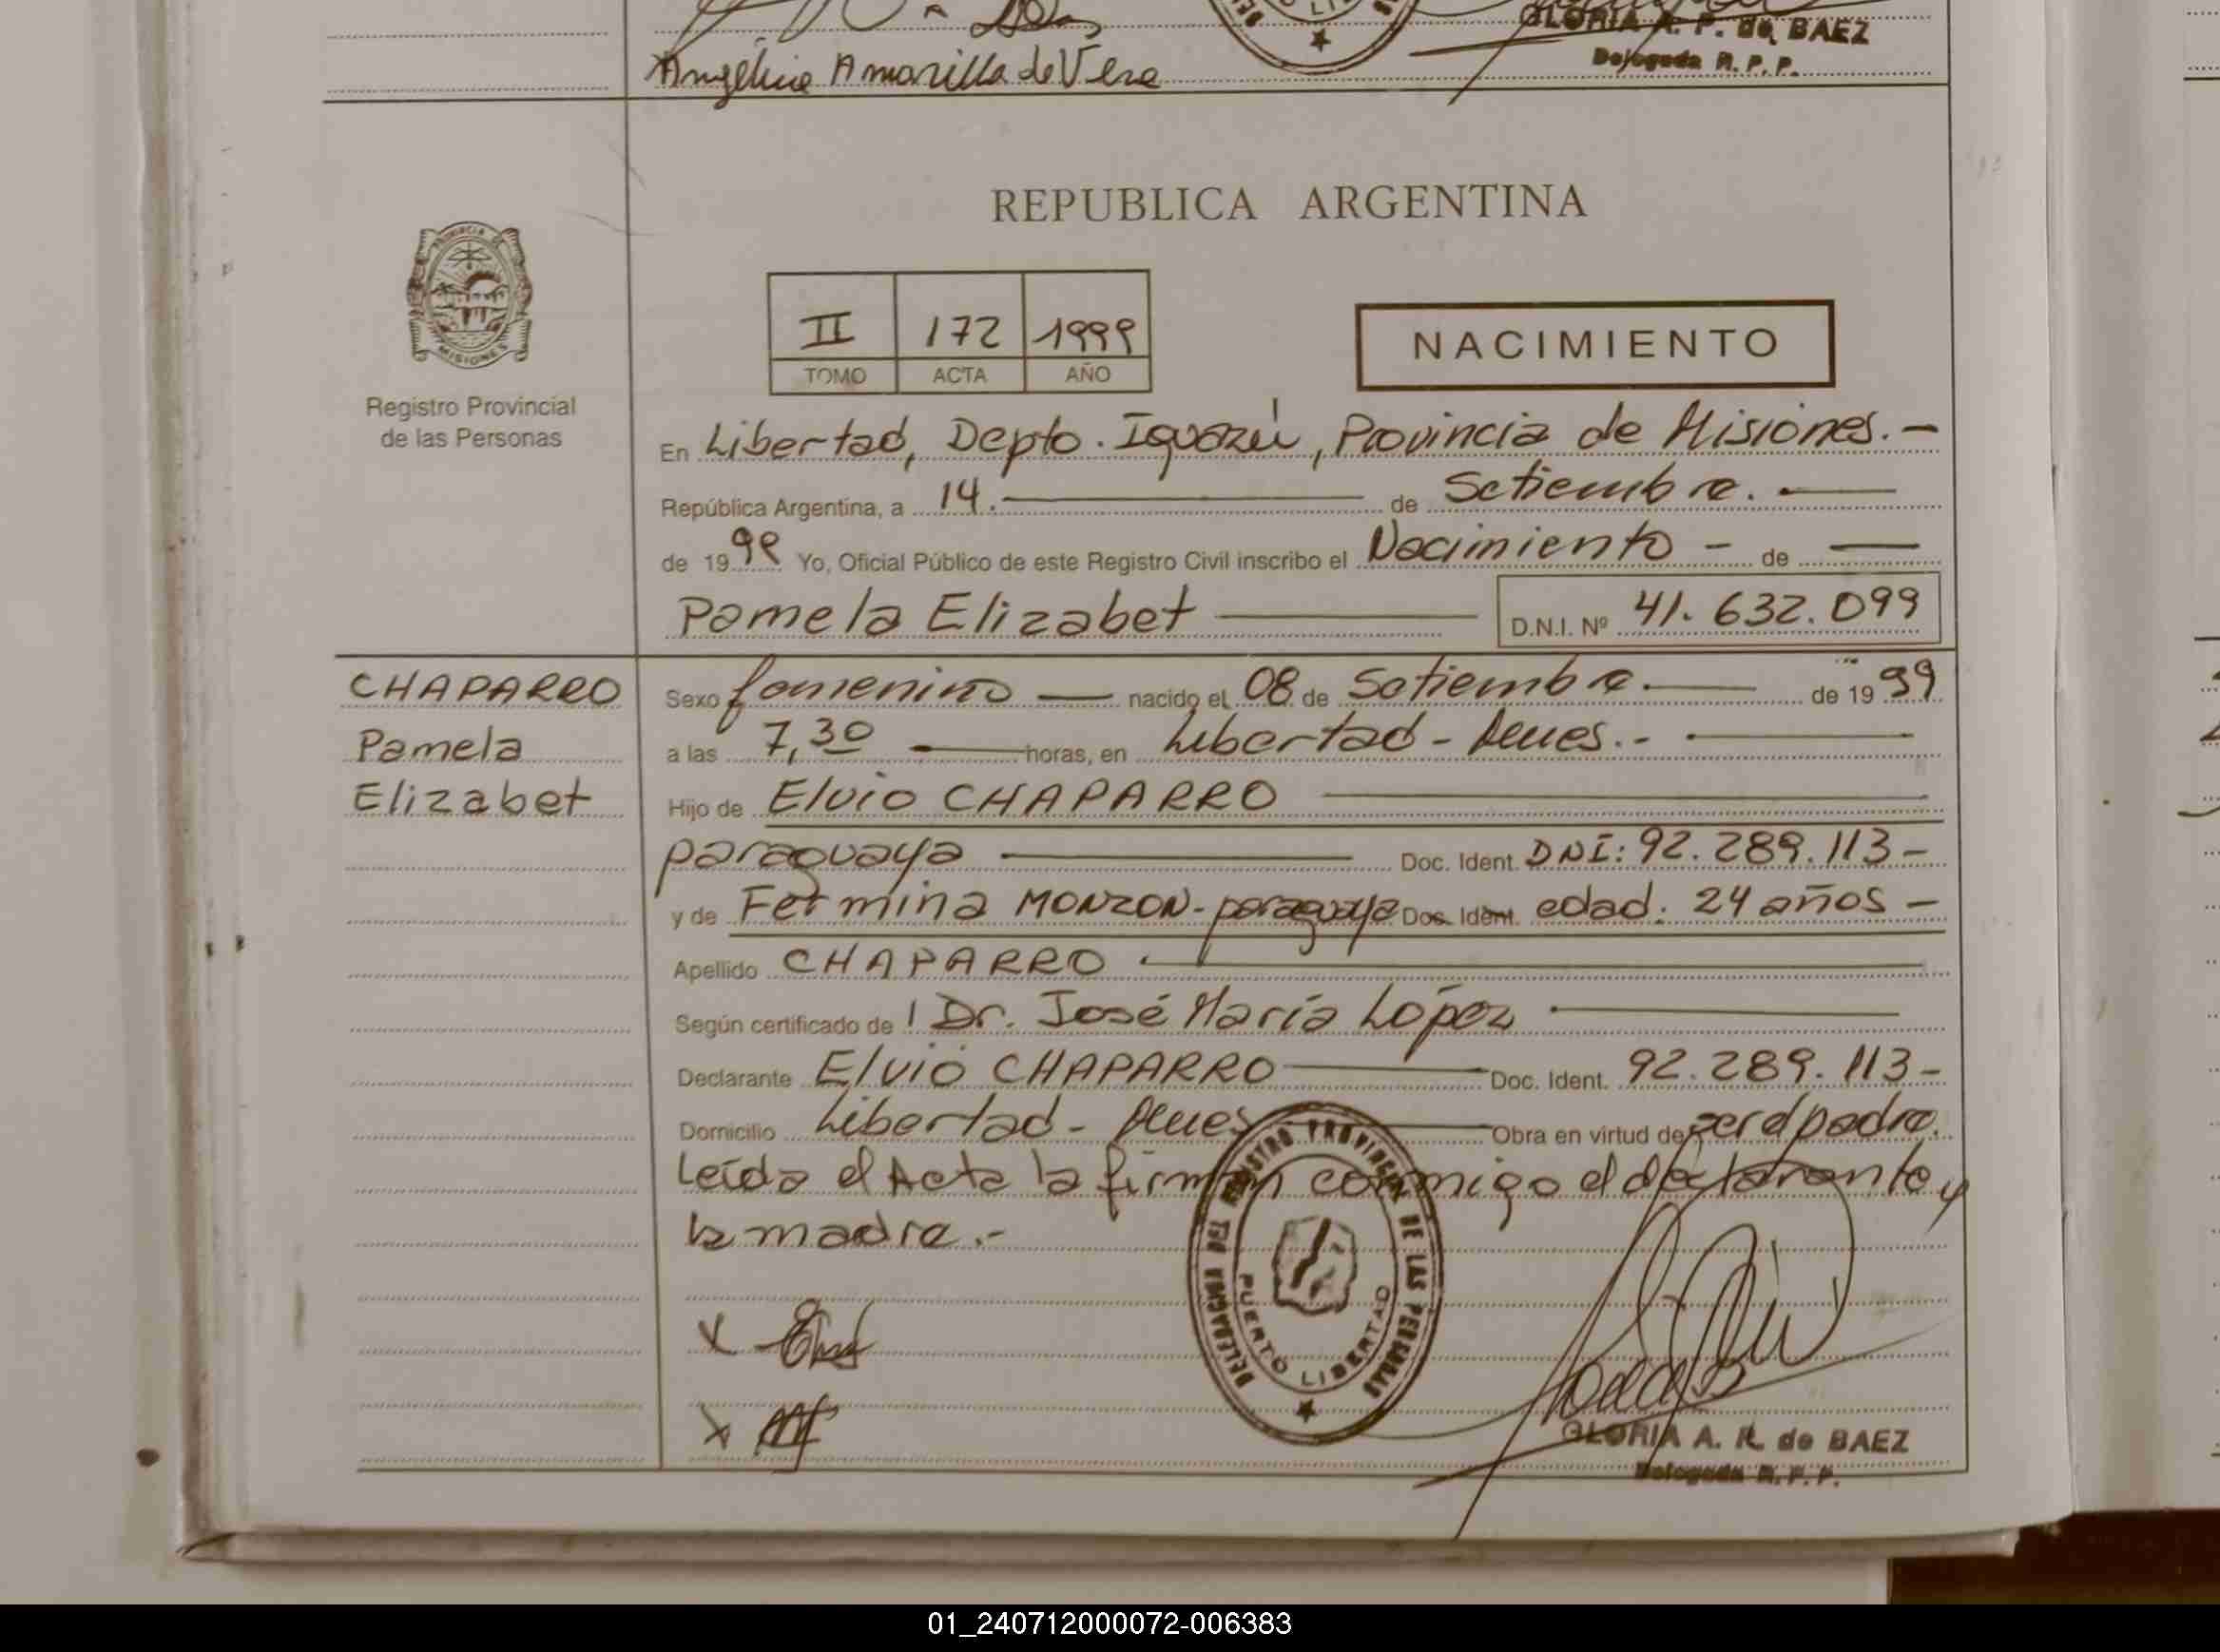 Angelina Amarilla de Vera
GLORIA A. R. de BAEZ
Delegada R. P. P.
REPUBLICA ARGENTINA
PROVINCIA DE
MISIONES
Registro Provincial
de las Personas
II 172 1999
TOMO ACTA AÑO
NACIMIENTO
En Libertad, Depto. Iguazú, Provincia de Misiones.-
República Argentina, a 14. de Setiembre.
de 1999 Yo, Oficial Público de este Registro Civil inscribo el Nacimiento - de
Pamela Elizabet
D.N.I. Nº 41.632.099
CHAPARRO
Pamela
Elizabet
Sexo femenino nacido el 08 de Setiembre. de 1999
a las 7,30 horas, en Libertad - Mnes.-
Hijo de Elvio CHAPARRO
paraguaya Doc. Ident. DNI: 92.289.113-
y de Fermina MONZON - paraguaya Doc. Ident. edad: 24 años -
Apellido CHAPARRO
Según certificado de l Dr. José María López
Declarante Elvio CHAPARRO Doc. Ident. 92.289.113-
Domicilio Libertad - Mnes Obra en virtud de ser el padre.
Leída el Acta la firman conmigo el declarante y
la madre.-
DELEGACION DEL REGISTRO PROVINCIAL DE LAS PERSONAS
PUERTO LIBERTAD
x
x
GLORIA A. R. de BAEZ
Delegada R. P. P.
01_240712000072-006383